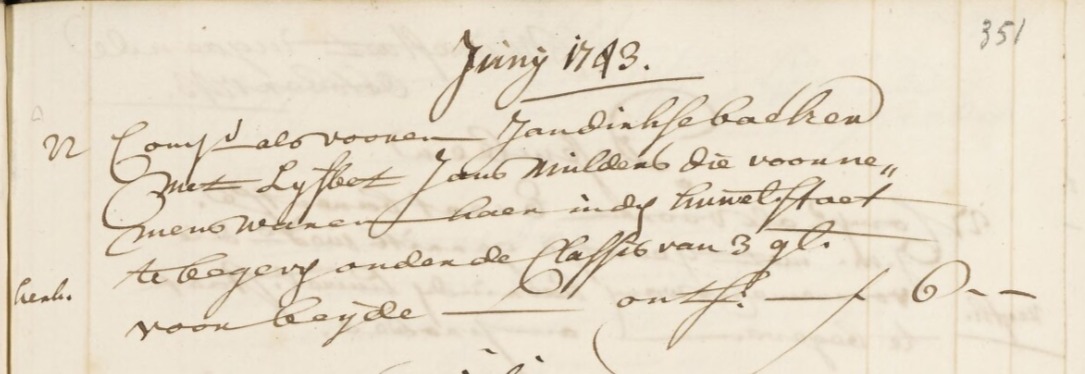 351
Junij 1743.
22 Comp.t als vooren Jandirkse backer
Met Lijsbet Jans Mulders die voorne„
mens waren haer in dn huwel. staet
te begeven onder de Classis van 3 gl.
kerk.
voor beijde ontf. 6 - -